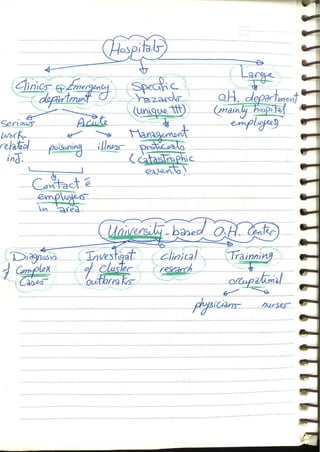 Hospitals
Clinics & Emergency
department
Serious
work
related
inj.
Acute
poisoning illness
Contact ē
employers
in area
Specific
hazards
(unique !!!)
Management
protocols
(catastrophic
events)
Large
O.H. department
(mainly hospital
employees)
University-based O.H. Center
Diagnosis
of Complex
Cases
Investigat
of cluster
outbreaks
clinical
research
Trainning
occupational
physicians nurses